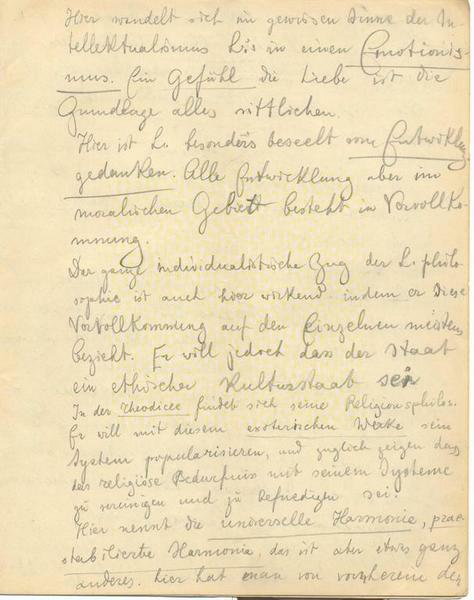 Hier wandelt sich im gewissen Sinne der In
tellektualismus L's in einen Emotionis-
mus. Ein Gefühl die Liebe ist die
Grundlage alles sittlichen.
Hier ist L. besonders beseelt vom Entwicklungs
gedanken. Alle Entwicklung aber im
moralischen Gebiet besteht in Vervollko-
mmnung.
Der ganze individualistische Zug der L. philo
sophie ist auch hier wirkend indem er diese
Vervollkommnung auf den Einzelnen meistens
bezieht. Er will jedoch dass der Staat
ein ethischer Kulturstaat sei
In der Theodicee findet sich seine Religionsphilos.
Er will mit diesem exoterischen Werke sein
System popularisieren, und zugleich zeigen dass
das religiöse Bedürfnis mit seinem Systeme
zu vereinigen und zu befriedigen sei.
Hier nennt die universelle Harmonie, prae
stabilierte Harmonie, das ist aber etwas ganz
anderes. hier hat man von vornherein den